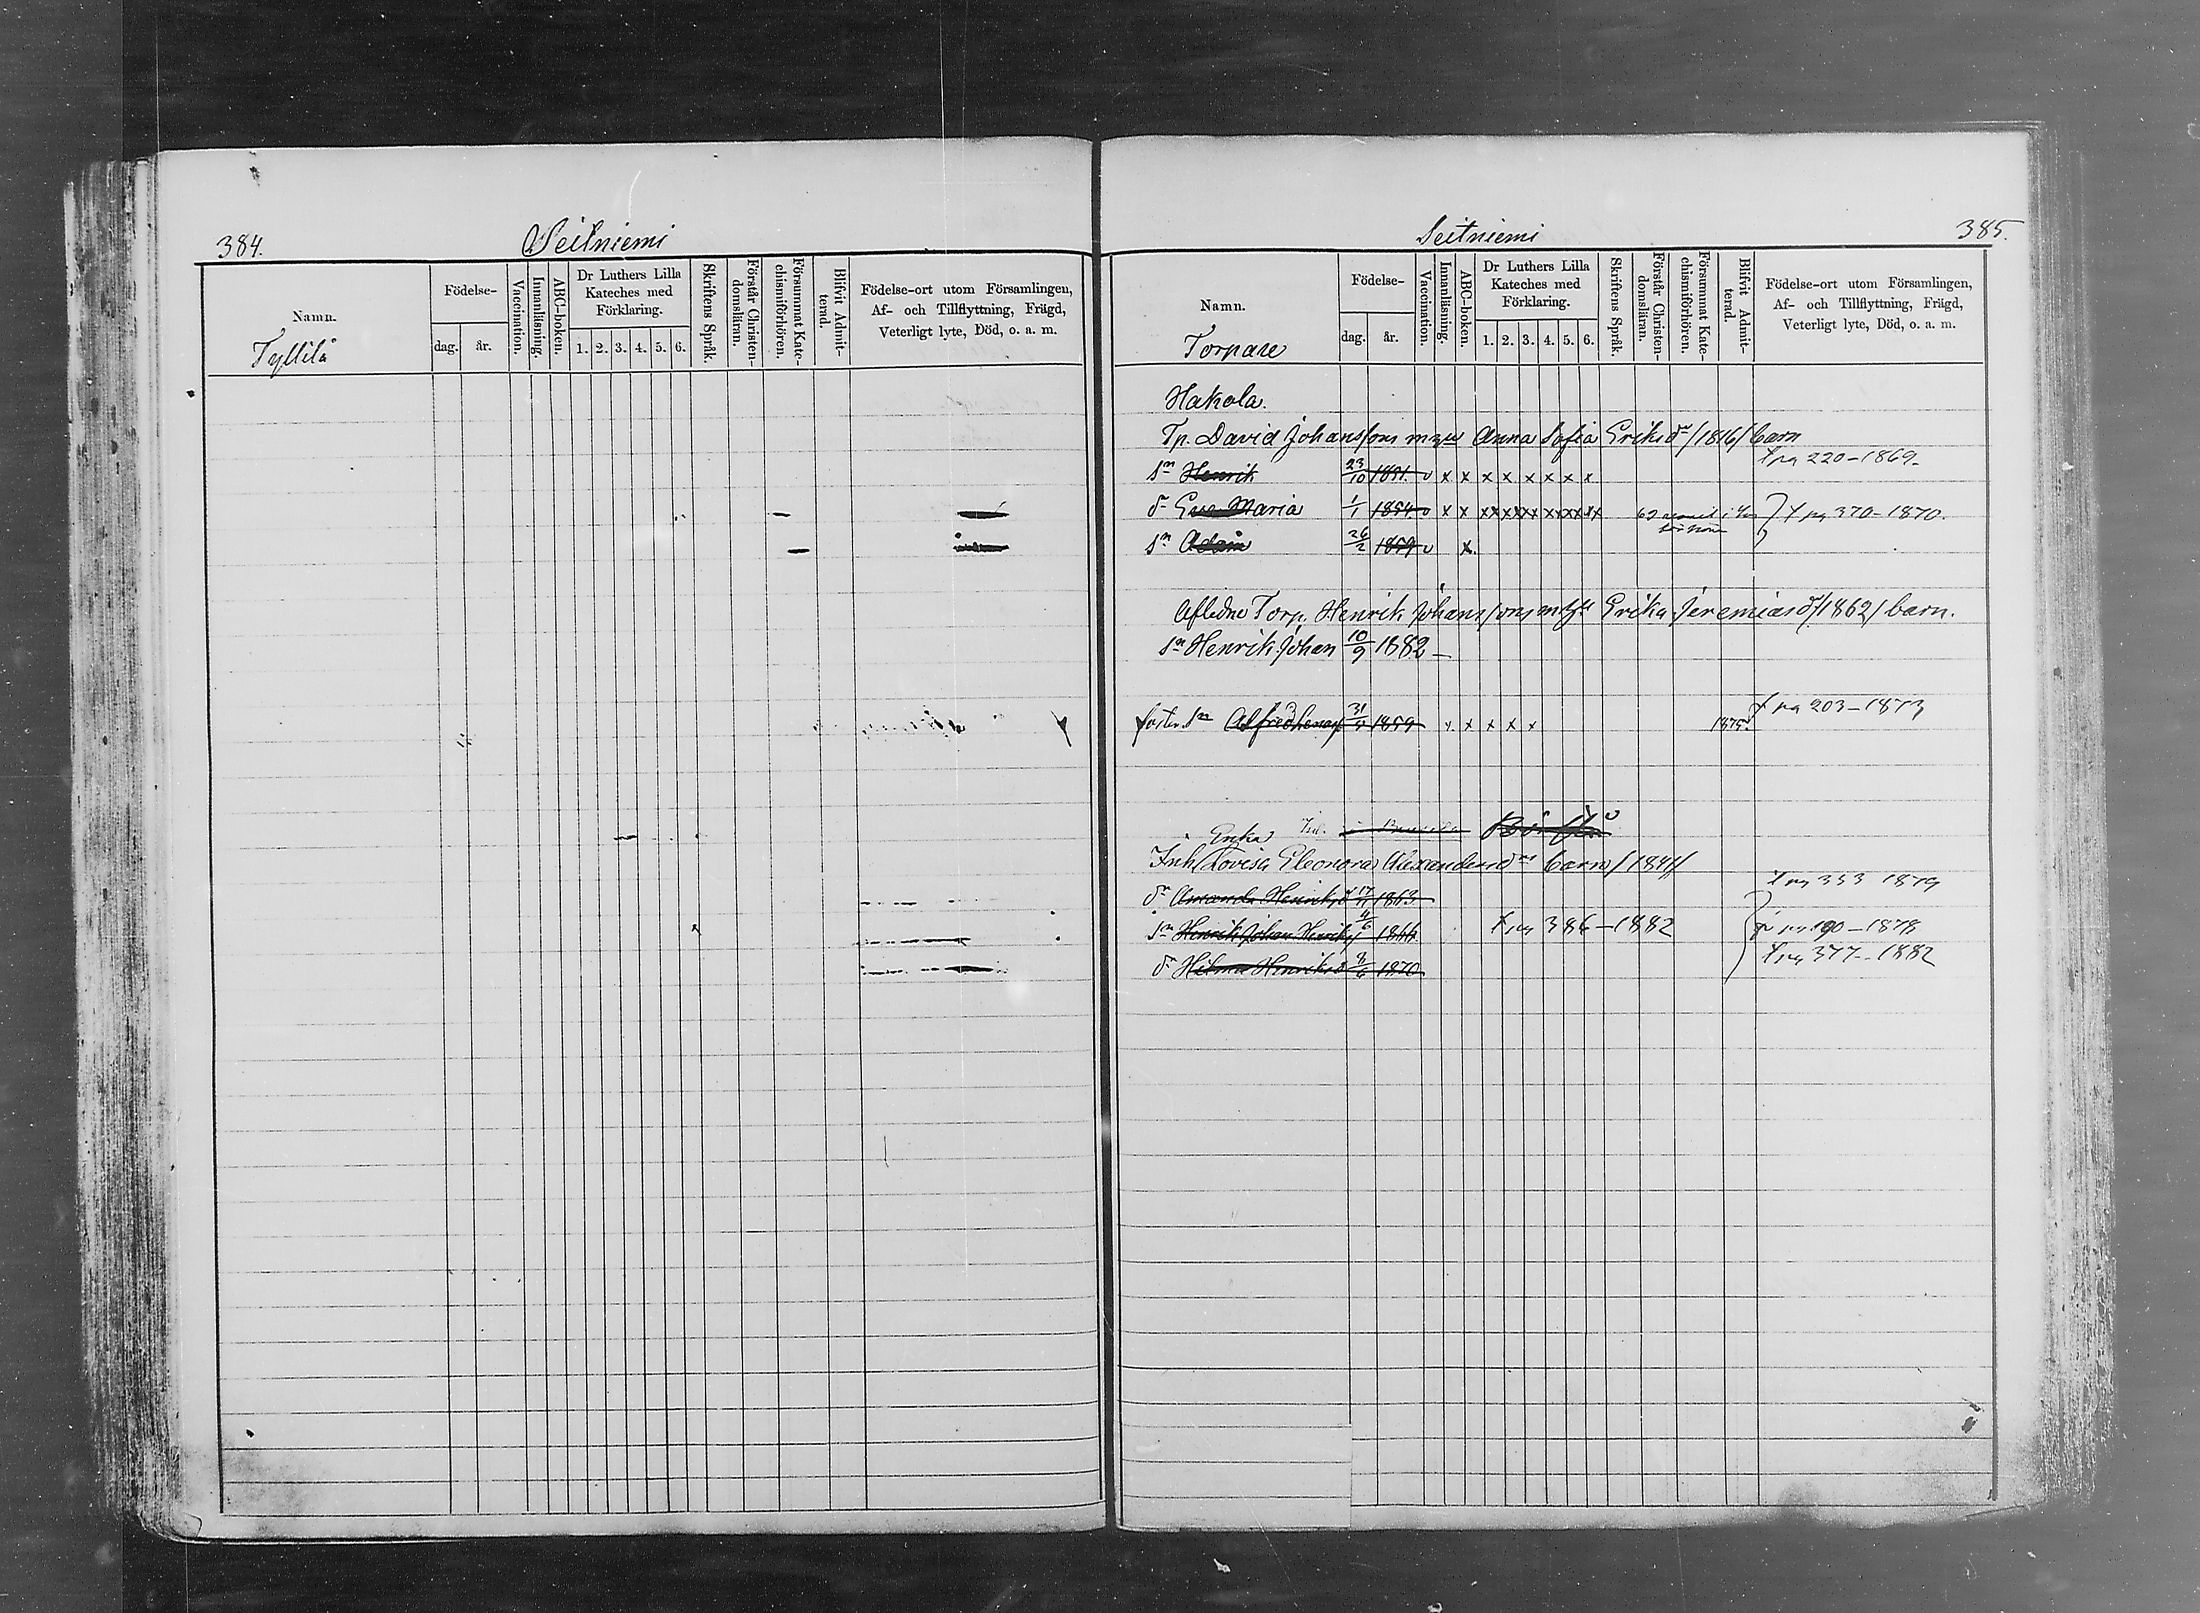 384.
Seitniemi
Namn.
Tyllilä
Födelse-
dag.
år.
Vaccination.
Innanläsning.
ABC-boken.
Dr Luthers Lilla
Kateches med
Förklaring.
1. 2. 3. 4. 5. 6.
Skriftens Språk.
Förstår Christen-
domsläran.
Försummat Kate-
chismiförhören.
Blifvit Admit-
terad.
Födelse-ort utom Församlingen,
Af- och Tillflyttning, Frägd,
Veterligt lyte, Död, o. a. m.
Seitniemi
385.
Namn.
Torpare
Födelse-
dag.
år.
Vaccination.
Innanläsning.
ABC-boken.
Dr Luthers Lilla
Kateches med
Förklaring.
1. 2. 3. 4. 5. 6.
Skriftens Språk.
Förstår Christen-
domsläran.
Försummat Kate-
chismiförhören.
Blifvit Admit-
terad.
Födelse-ort utom Församlingen,
Af- och Tillflyttning, Frägd,
Veterligt lyte, Död, o. a. m.
Hakola.
Tp. David Johanssons Anna Sofia Eriksdr /1816/ barn
sn Henrik 23/10 v x x x x x x x x 220-1869.
dr Eva Maria 1/1 1854 v x x xx xx xx xx xx xx 370-1870.
sn Adam 26/2 1859 v x
Aflidne Torp. Henrik Johanssons Erika Jeremiasdr /1862/ barn.
sn Henrik Johan 10/9 1882
foster sn Alfred 1859 x x x x x 1875. 203-1873
Enka
Inh. Lovisa Eleonora Alexandersdrs barn /1841/
dr Amanda Henriksdr 1863 353 1879
sn Henrik Johan Henrikss 4/6 1866 386-1882 190-1878
dr Hilma Henriksdr 8/6 1870 377-1882